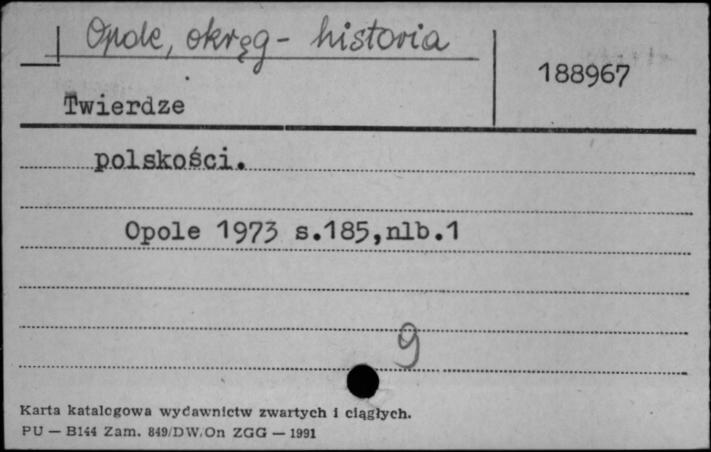 Opole, okręg - historia
188967
Twierdze
polskości.
Opole 1973 s.185,nlb.1
9
Karta katalogowa wydawnictw zwartych i ciągłych.
PU — B144 Zam. 849/DW/On ZGG — 1991